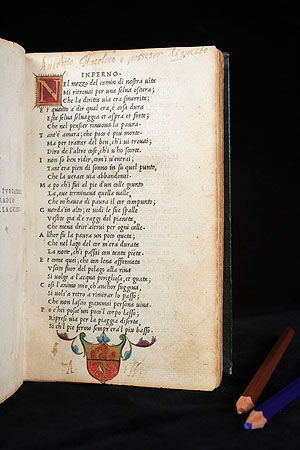 possessor di questo
INFERNO.
NEl mezzo del camin di nostra uita
Mi ritrouai per una selua oscura;
Che la diritta uia era smarrita:
E t quanto a dir qual era, è cosa dura
Esta selua seluaggia et aspra et forte;
Che nel pensier rinoua la paura.
T ant'è amara; che poco è piu morte.
Ma per trattar del ben, ch'i ui trouai;
Diro de l'altre cose, ch'i u'ho scorte.
I non so ben ridir, com'i u'entrai;
Tant'era pien di sonno in su quel punto,
Che la uerace uia abbandonai.
M a po ch'i fui al pie d'un colle giunto
La, oue terminaua quella ualle,
Che m'hauea di paura il cor compunto;
G uarda'in alto; et uidi le sue spalle
Vestite gia de raggi del pianeta,
Che mena dritt'altrui per ogni calle.
A llhor fu la paura un poco queta;
Che nel lago del cor m'era durata
La notte, ch'i passai con tanta pieta.
E t come quei; che con lena affannata
Vscito fuor del pelago alla riua
Si uolge a l'acqua perigliosa, et guata;
C osi l'animo mio, ch'anchor fuggiua,
Si uols'a retro a rimirar lo passo;
Che non lascio giammai persona uiua.
P o c'hei posat'un poco'l corpo lasso;
Ripresi uia per la piaggia diserta,
Si ch'l pie fermo sempr'era'l piu basso.